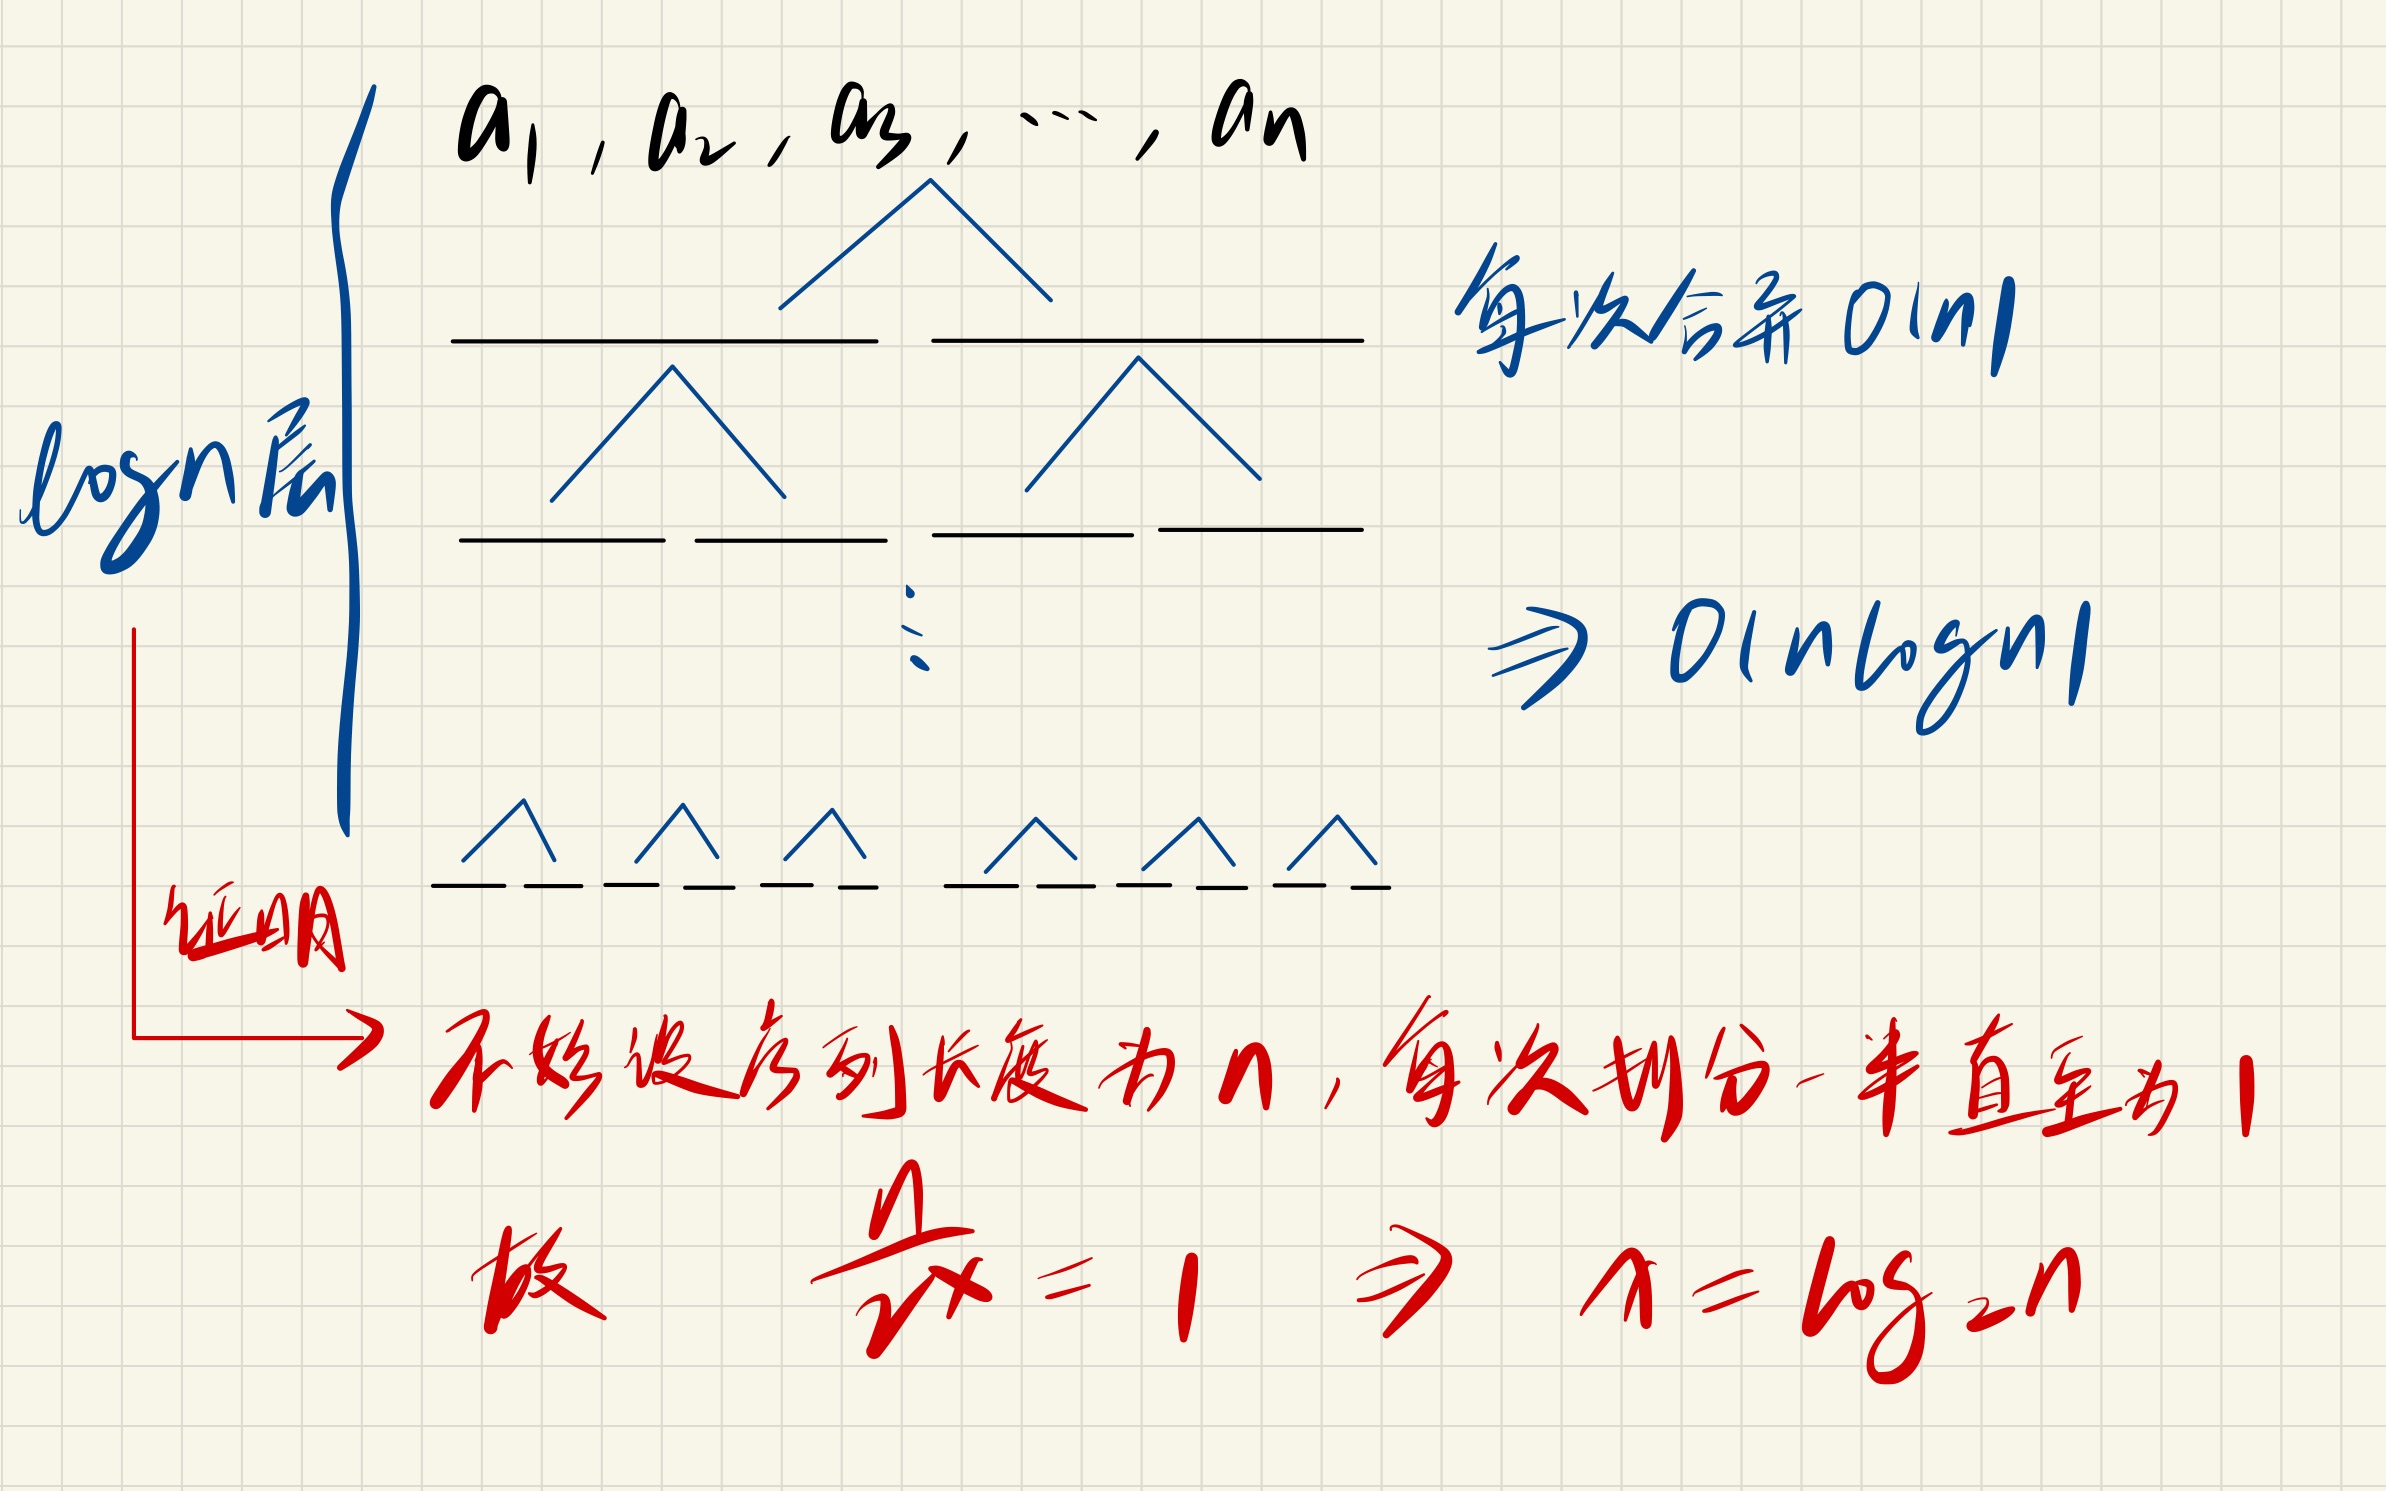 a₁, a₂, a₃, ⋯, aₙ
每次合并 O(n)
logn层
⇒ O(nlogn)
证明
不妨设序列长度为n,每次划分一半直至为1
故 n/2ˣ = 1 ⇒ x = log₂n